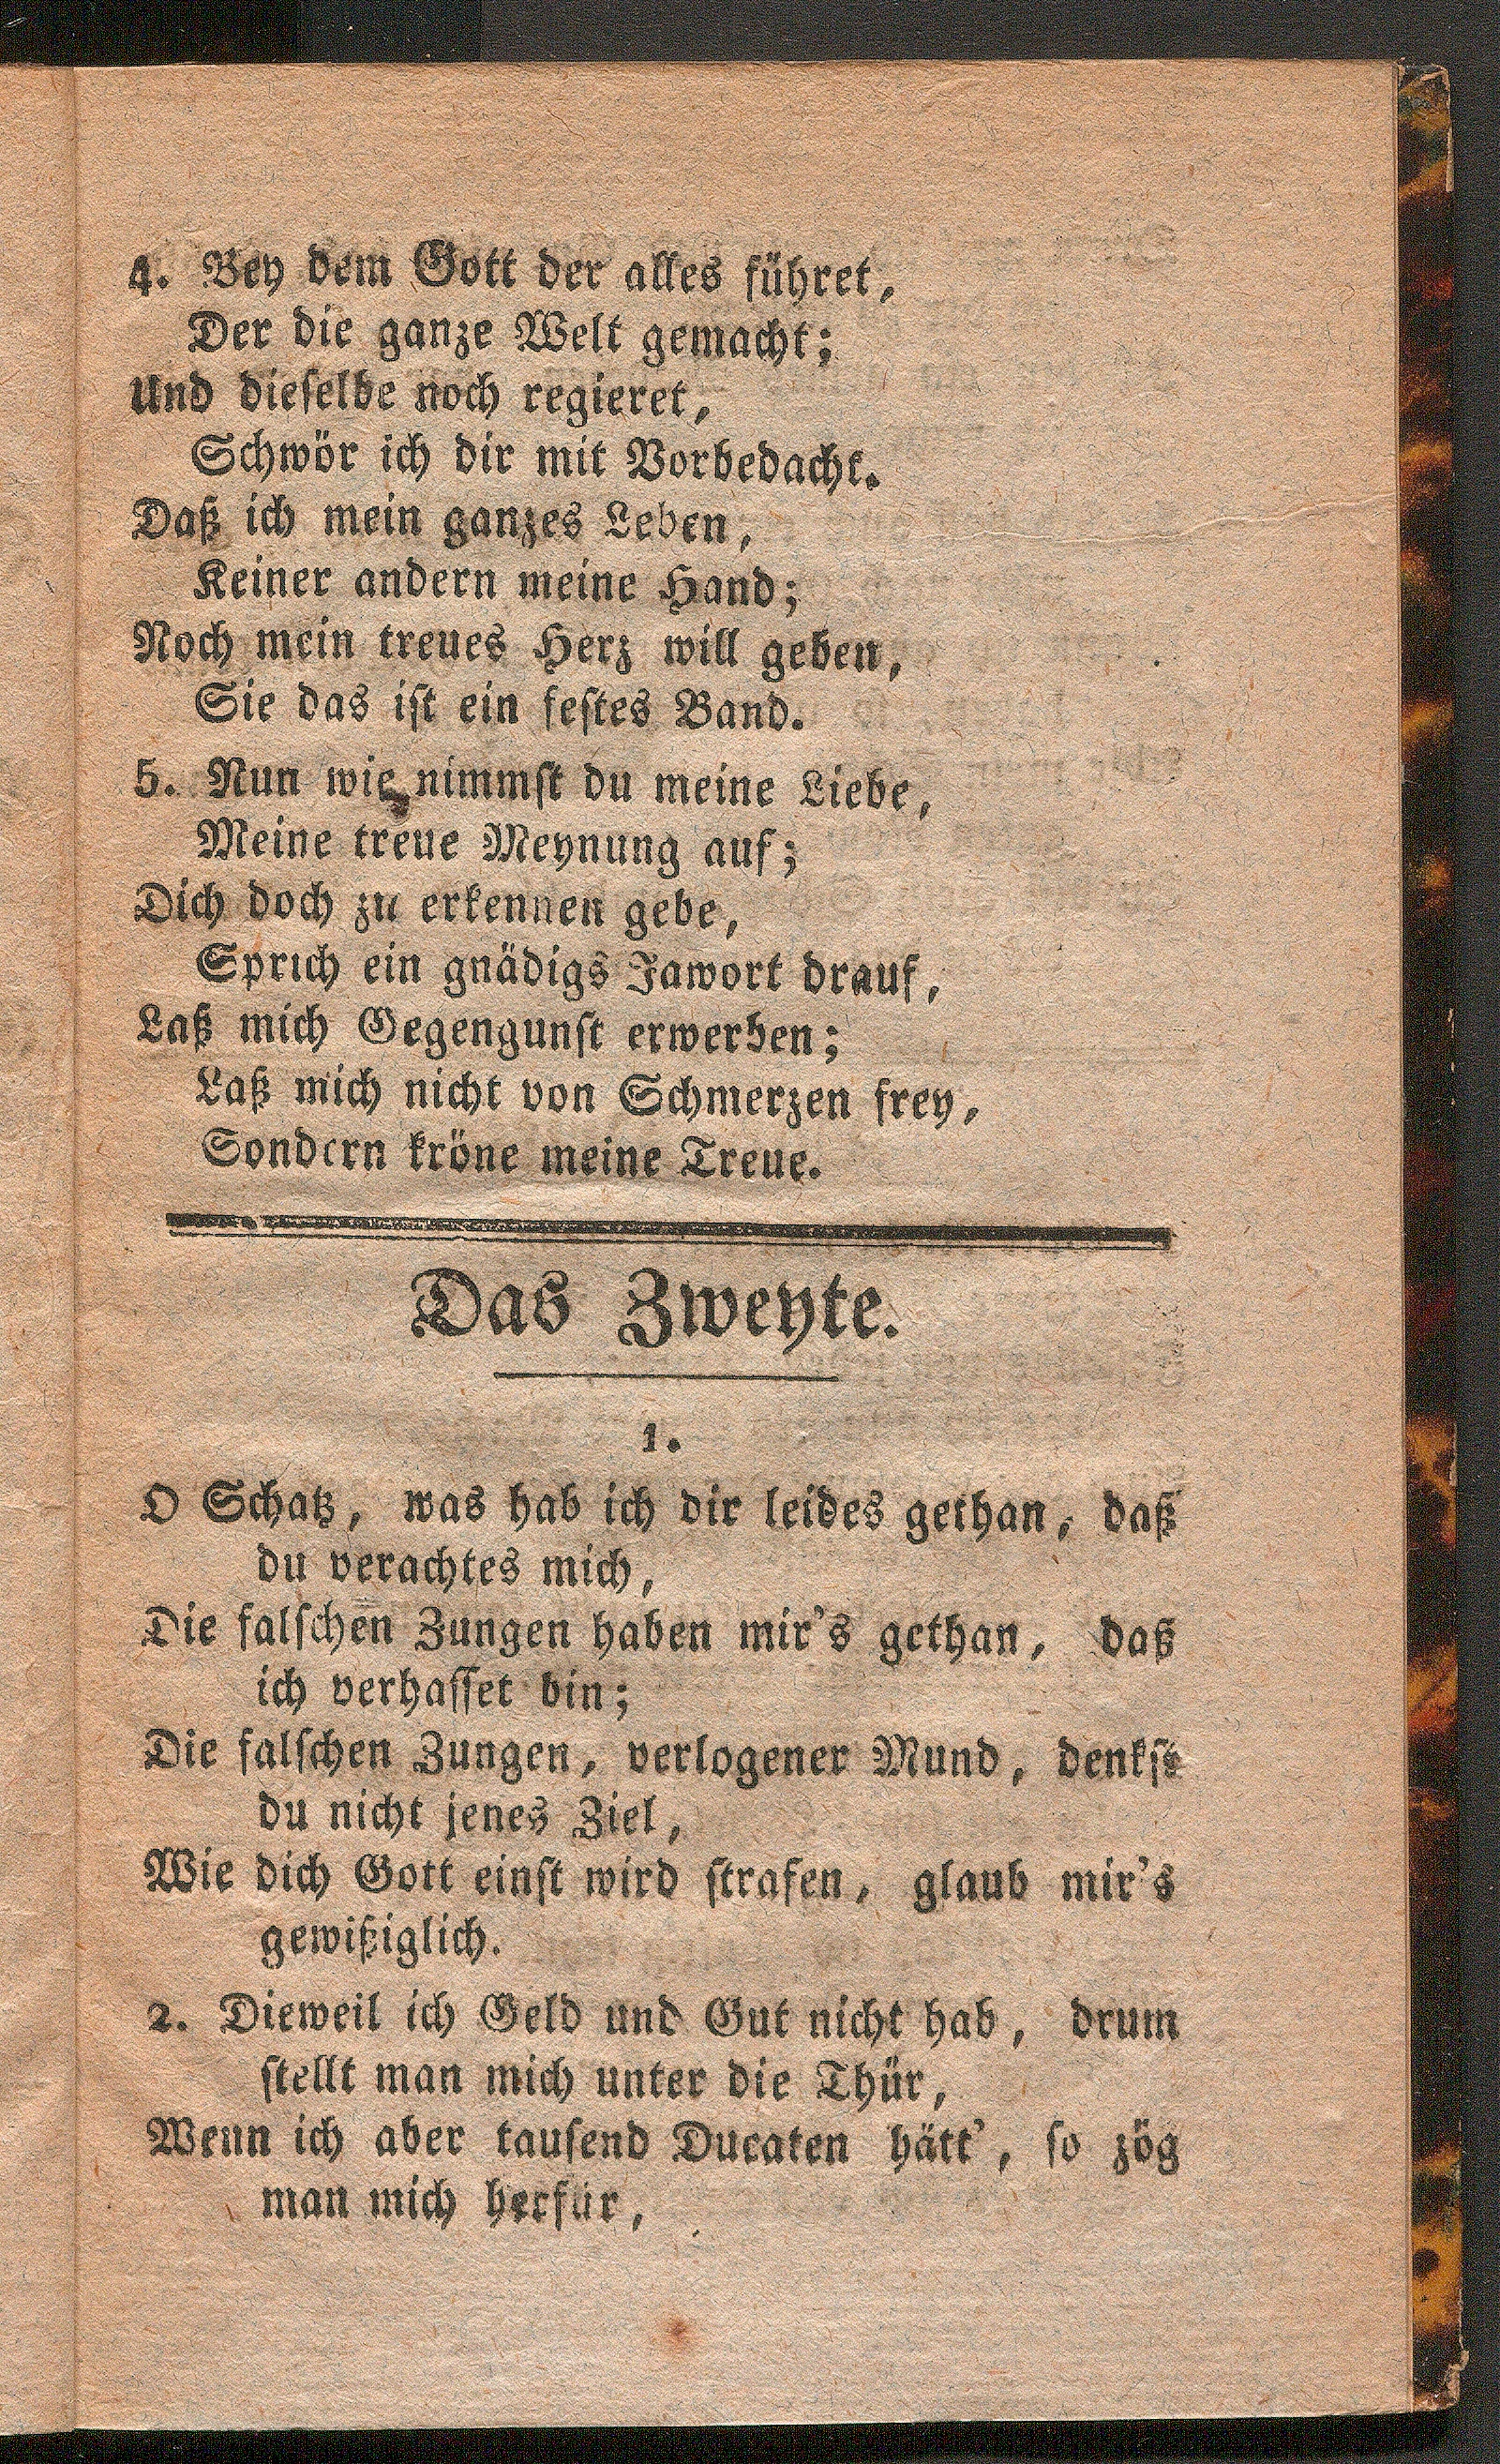 4. Bey dem Gott der alles führet,
Der die ganze Welt gemacht;
Und dieselbe noch regieret,
Schwör ich dir mit Vorbedacht.
Daß ich mein ganzes Leben,
Keiner andern meine Hand;
Noch mein treues Herz will geben,
Sie das ist ein festes Band.
5. Nun wie nimmst du meine Liebe,
Meine treue Meynung auf;
Dich doch zu erkennen gebe,
Sprich ein gnädigs Jawort drauf,
Laß mich Gegengunst erwerben;
Laß mich nicht von Schmerzen frey,
Sondern kröne meine Treue.
Das Zweyte.
1.
O Schatz, was hab ich dir leides gethan, daß
du verachtes mich,
Die falschen Zungen haben mir's gethan, daß
ich verhasset bin;
Die falschen Zungen, verlogener Mund, denkst
du nicht jenes Ziel,
Wie dich Gott einst wird strafen, glaub mir's
gewißiglich.
2. Dieweil ich Geld und Gut nicht hab, drum
stellt man mich unter die Thür,
Wenn ich aber tausend Ducaten hätt', so zög
man mich herfür,